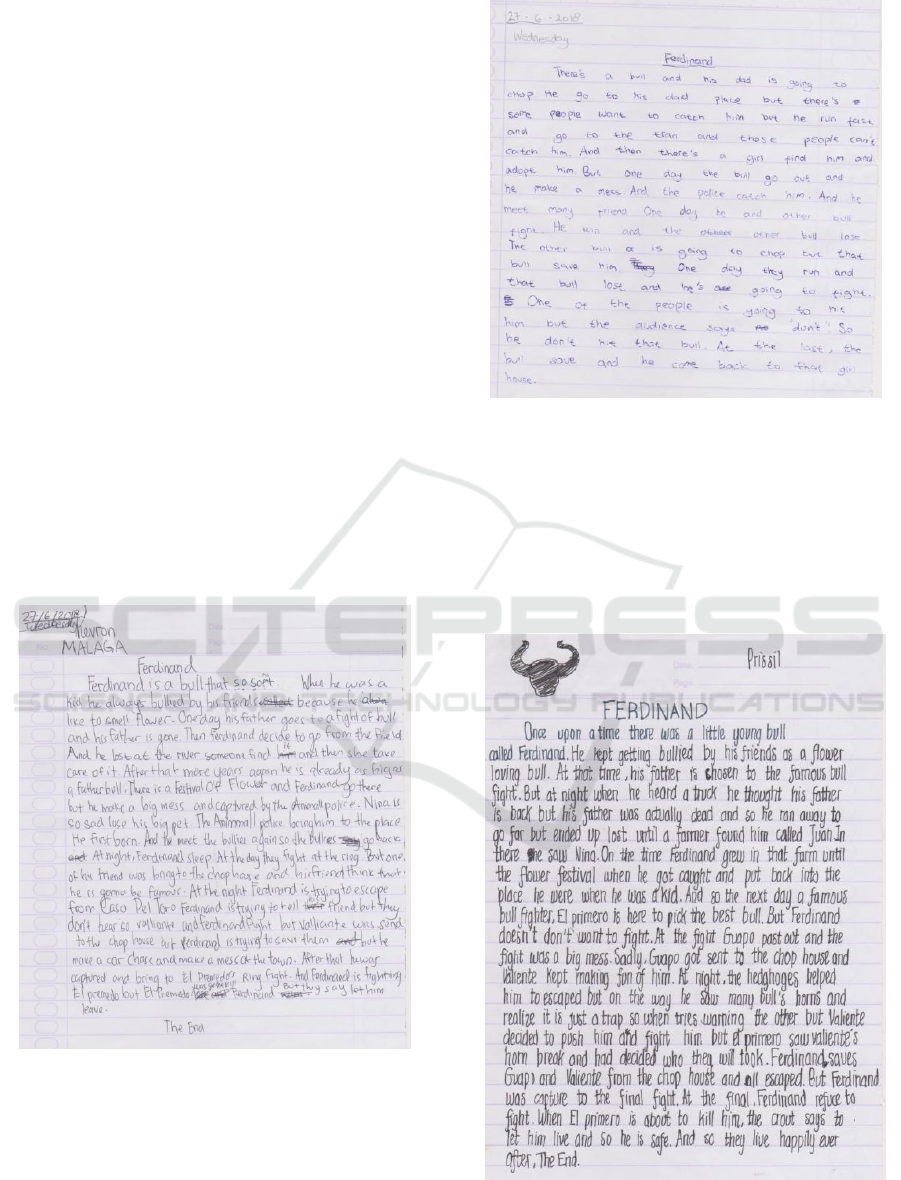 27-6-2018
Wednesday
Ferdinand
There's a bull and his dad is going to
chop. He go to his dad place but there's
some people want to catch him but he run fast
and go to the train and those people can't
catch him. And then there's a girl find him and
adopt him. But one day the bull go out and
he make a mess. And the police catch him. And he
meet many friend. One day he and other bull
fight. He win and the other bull lose
The other bull is going to chop but that
bull save him One day they run and
that bull lost and he's going to fight.
One of the people is going to hit
him but the audience says "don't". So
he don't hit that bull. At the last, the
bull save and he come back to that girl
house.
27/6/2018
Wednesday
MALAGA
Ferdinand
Ferdinand is a bull that so soft. When he was a
kid he always bullied by his friends because he
like to smell flower. One day his father goes to a fight of bull
and his father is gone. Then Ferdinand decide to go from the field
And he lost at the river someone find it and then she take
care of it. After that more years again he is already as big as
a father bull. There is a festival of Flower and Ferdinand go there
but he make a big mess and captured by the Animall police. Nina is
so sad lose his big pet. The Animmall police bring him to the place
He first born. And he meet the bullies again so the bullies go back
At night, Ferdinand sleep. At the day they fight at the ring. But one
of his friend was bring to the chop house and his friend think that
he is gonna be famous. At the night Ferdinand is trying to escape
from Casa Del Toro Ferdinand is trying to tell friend but they
don't hear so valliante and Ferdinand Fight but valliante was send
to the chop house but Ferdinand is trying to save them but he
make a car chase and make a mess at the town. After that he was
captured and bring to El Premedo's Ring Fight. And Ferdinand is fighting
El premedo but El Premedo Ferdinand But they say let him
leave.
The End
Prissil
FERDINAND
Once upon a time there was a little young bull
called Ferdinand. He kept getting bullied by his friends as a flower
loving bull. At that time, his father is chosen to the famous bull
fight. But at night when he heard a truck he thought his father
is back but his father was actually dead and so he ran away to
go far but ended up lost until a farmer found him called Juan. In
there he saw Nina. On the time Ferdinand grew in that farm until
the flower festival when he got caught and put back into the
place he were when he was a kid. And so the next day a famous
bull fighter, El primero is here to pick the best bull. But Ferdinand
doesn't don't want to fight. At the fight Guapo past out and the
fight was a big mess. Sadly, Guapo got sent to the chop house and
Valiente kept making fun of him. At night, the hedghoges helped
him to escaped but on the way he saw many bull's horns and
realize it is just a trap so when tries warning the other but Valiente
decided to push him and fight him but el primero saw valiente's
horn break and had decided who they will took. Ferdinand saves
Guapo and Valiente from the chop house and all escaped. But Ferdinand
was capture to the final fight. At the final, Ferdinand refuce to
fight. When El primero is about to kill him, the crout says to
let him live and so he is safe. And so they live happily ever
after, The End.
SCITEPRESS
SCIENCE AND TECHNOLOGY PUBLICATIONS